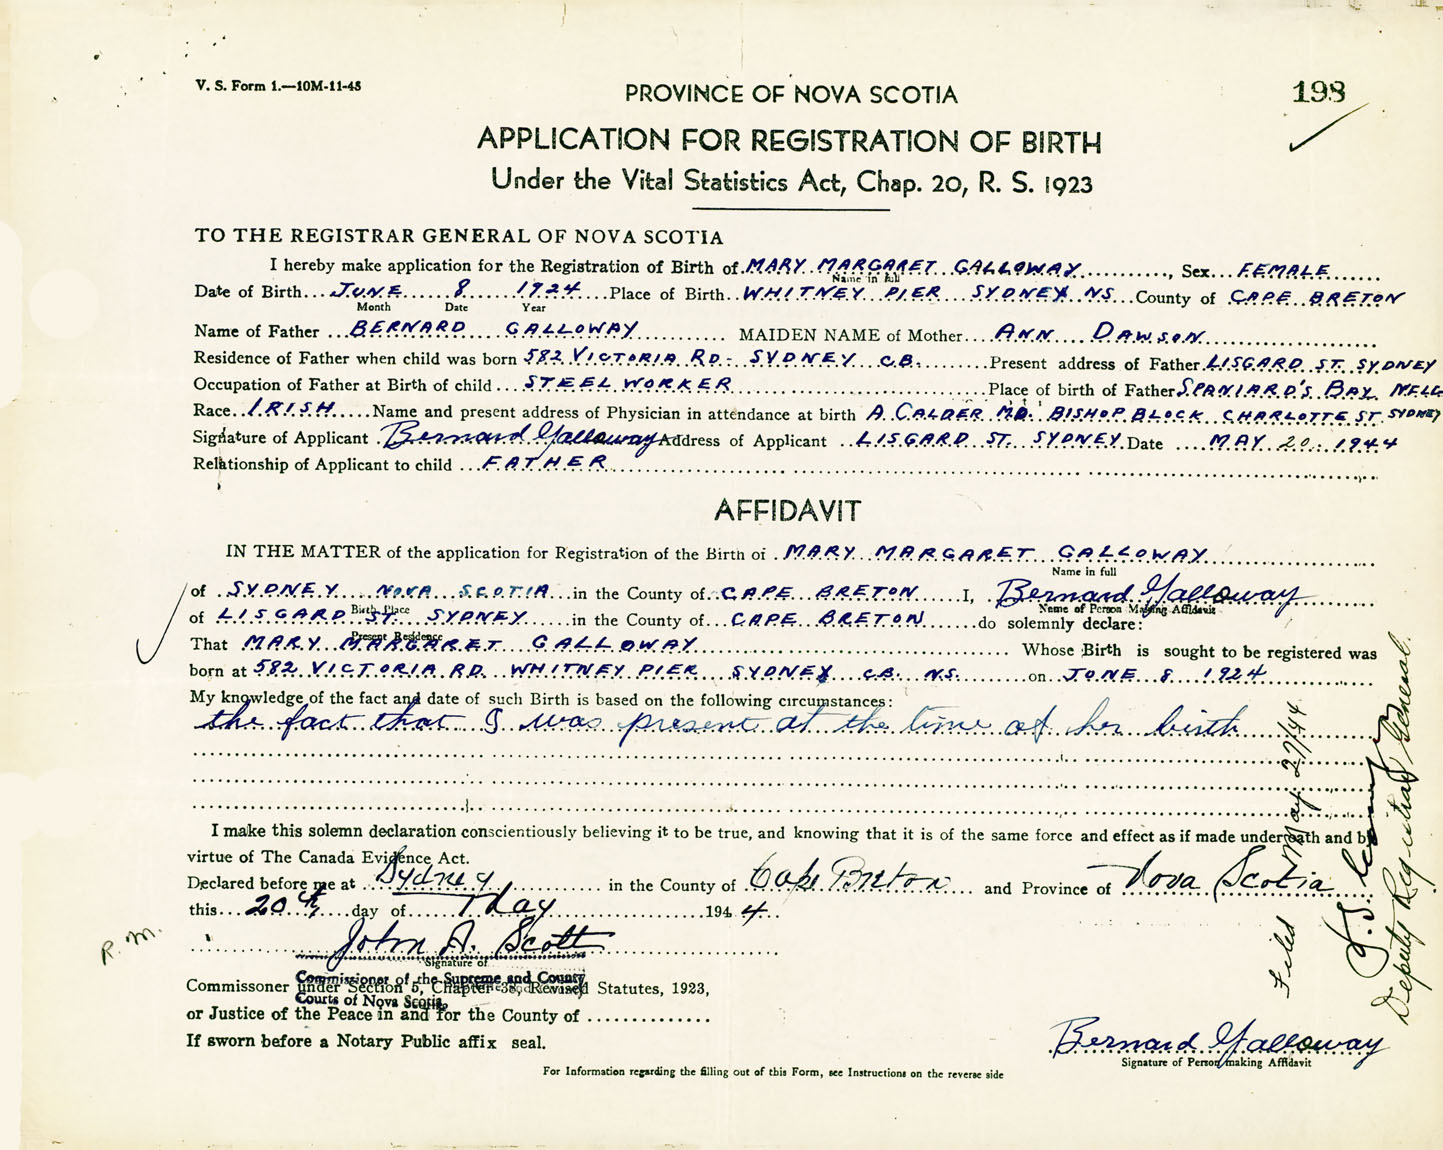 V. S. Form 1.—10M-11-43
198
PROVINCE OF NOVA SCOTIA
APPLICATION FOR REGISTRATION OF BIRTH
Under the Vital Statistics Act, Chap. 20, R. S. 1923
TO THE REGISTRAR GENERAL OF NOVA SCOTIA
I hereby make application for the Registration of Birth of MARY MARGARET GALLOWAY, Sex FEMALE
Name in full
Date of Birth JUNE 8 1924 Place of Birth WHITNEY PIER SYDNEY NS County of CAPE BRETON
Month Date Year
Name of Father BERNARD GALLOWAY MAIDEN NAME of Mother ANN DAWSON
Residence of Father when child was born 582 VICTORIA RD. SYDNEY C.B. Present address of Father LISGARD ST. SYDNEY
Occupation of Father at Birth of child STEEL WORKER Place of birth of Father SPANIARD'S BAY, NFLD
Race IRISH Name and present address of Physician in attendance at birth A. CALDER M.D. BISHOP BLOCK CHARLOTTE ST. SYDNEY
Signature of Applicant Bernard Galloway Address of Applicant LISGARD ST. SYDNEY Date MAY 20 1944
Relationship of Applicant to child FATHER
AFFIDAVIT
IN THE MATTER of the application for Registration of the Birth of MARY MARGARET GALLOWAY
Name in full
of SYDNEY NOVA SCOTIA in the County of CAPE BRETON I, Bernard Galloway
Birth Place Name of Person Making Affidavit
of LISGARD ST. SYDNEY in the County of CAPE BRETON do solemnly declare:
Present Residence
That MARY MARGARET GALLOWAY Whose Birth is sought to be registered was
born at 582 VICTORIA RD. WHITNEY PIER SYDNEY C.B. N.S. on JUNE 8 1924
My knowledge of the fact and date of such Birth is based on the following circumstances:
the fact that I was present at the time of her birth
I make this solemn declaration conscientiously believing it to be true, and knowing that it is of the same force and effect as if made under oath and by
virtue of The Canada Evidence Act.
Declared before me at Sydney in the County of Cape Breton and Province of Nova Scotia
this 20th day of May 1944
R.M.
John A. Scott
Signature of
Commissioner of the Supreme and County
Courts of Nova Scotia
Commissoner under Section 5, Chapter 38, Revised Statutes, 1923,
or Justice of the Peace in and for the County of
If sworn before a Notary Public affix seal.
Bernard Galloway
Signature of Person making Affidavit
For Information regarding the filling out of this Form, see Instructions on the reverse side
Filed May 27/44
Deputy Registrar General.